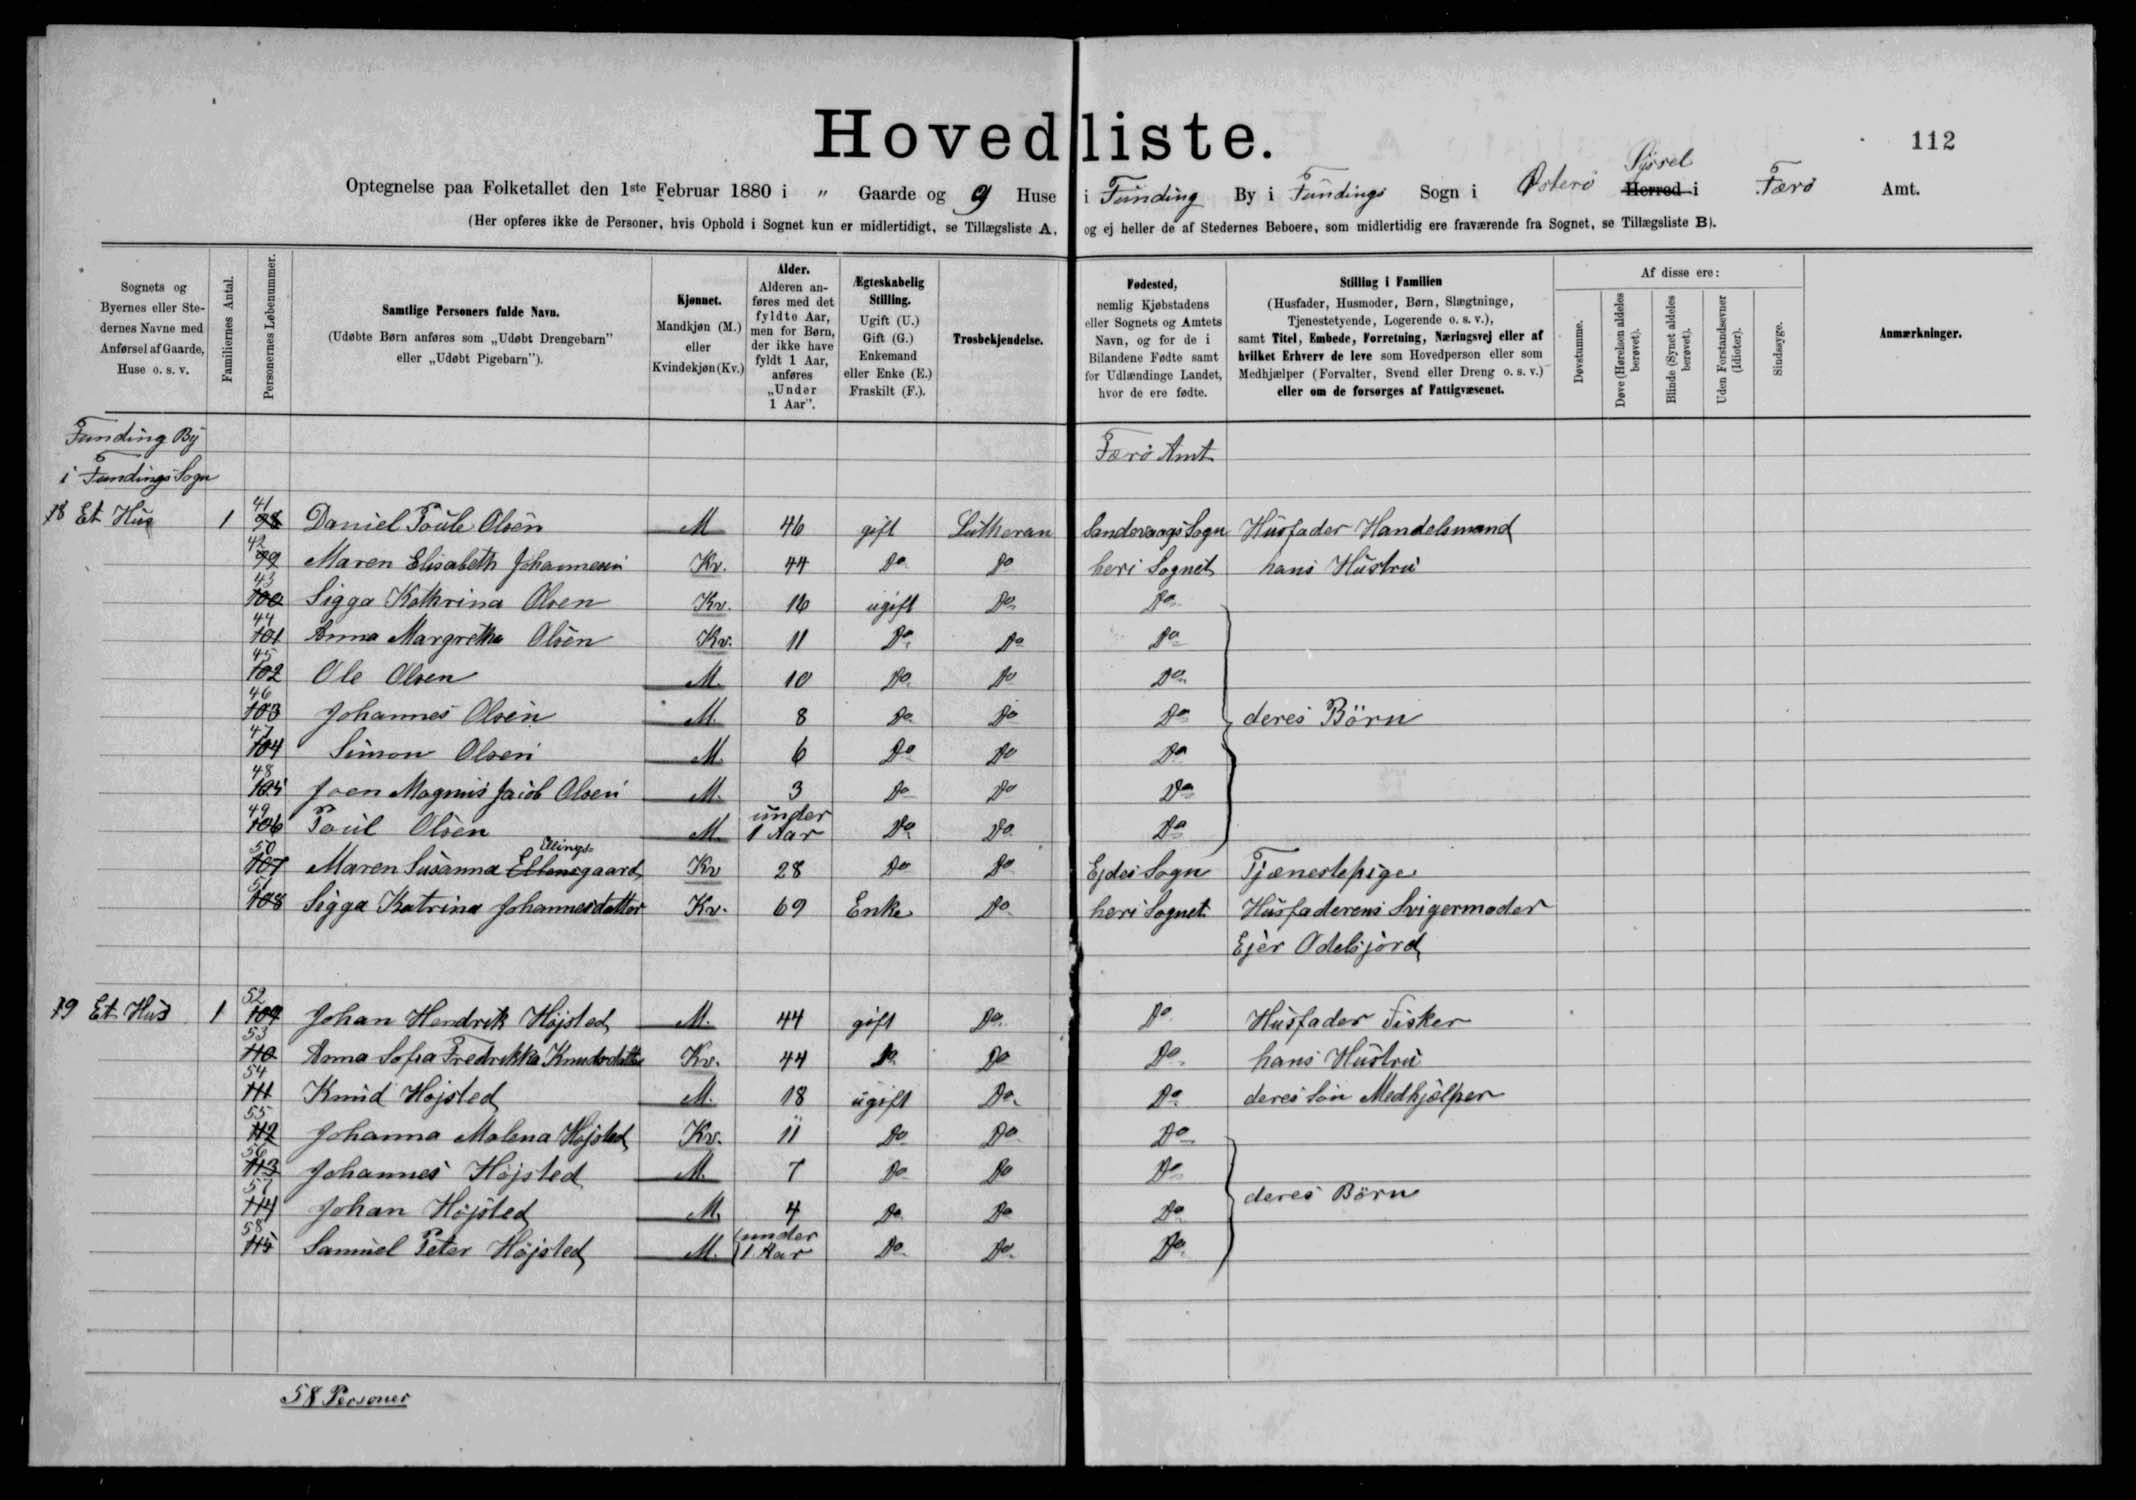 Hovedliste.
112
Optegnelse paa Folketallet den 1ste Februar 1880 i " Gaarde og 9 Huse i Funding By i Fundings Sogn i Østerø Syssel Herred i Færø Amt.
(Her opføres ikke de Personer, hvis Ophold i Sognet kun er midlertidigt, se Tillægsliste A, og ej heller de af Stedernes Beboere, som midlertidig ere fraværende fra Sognet, se Tillægsliste B).
Sognets og Byernes eller Stedernes Navne med Anførsel af Gaarde, Huse o. s. v.
Familiernes Antal.
Personernes Løbenummer.
Samtlige Personers fulde Navn.
(Udøbte Børn anføres som „Udøbt Drengebarn" eller „Udøbt Pigebarn").
Kjønnet.
Mandkjøn (M.) eller Kvindekjøn (Kv.)
Alder.
Alderen anføres med det fyldte Aar, men for Børn, der ikke have fyldt 1 Aar, anføres „Under 1 Aar".
Ægteskabelig Stilling.
Ugift (U.) Gift (G.) Enkemand eller Enke (E.) Fraskilt (F.).
Trosbekjendelse.
Fødested,
nemlig Kjøbstadens eller Sognets og Amtets Navn, og for de i Bilandene Fødte samt for Udlændinge Landet, hvor de ere fødte.
Stilling i Familien
(Husfader, Husmoder, Børn, Slægtninge, Tjenestetyende, Logerende o. s. v.), samt Titel, Embede, Forretning, Næringsvej eller af hvilket Erhverv de leve som Hovedperson eller som Medhjælper (Forvalter, Svend eller Dreng o. s. v.) eller om de forsørges af Fattigvæsenet.
Af disse ere:
Døvstumme.
Døve (Hørelsen aldeles berøvet).
Blinde (Synet aldeles berøvet).
Uden Forstandsevner (Idioter).
Sindssyge.
Anmærkninger.
Funding By
i Fundings Sogn
Færø Amt
18 Et Hus 1 41 98 Daniel Poule Olsen M 46 gift Lutheran Sandevaags Sogn Husfader Handelsmand
42 99 Maren Elisabeth Johannesen Kv. 44 Do Do heri Sognet hans Hustru
43 100 Sigga Kathrina Olsen Kv. 16 ugift Do Do
44 101 Anna Margretha Olsen Kv. 11 Do Do Do
45 102 Ole Olsen M. 10 Do Do Do
46 103 Johannes Olsen M. 8 Do Do Do deres Börn
47 104 Simon Olsen M. 6 Do Do Do
48 105 Joen Magnus Jacob Olsen M. 3 Do Do Do
49 106 Poul Olsen M under 1 Aar Do Do Do
50 107 Maren Susanna Ellensgaard Ellings Kv 28 Do Do Ejdes Sogn Tjænestepige
51 108 Sigga Katrina Johannesdatter Kv. 69 Enke Do heri Sognet Husfaderens Svigermoder
Ejer Odelsjord
19 Et Hus 1 52 109 Johan Hendrik Höjsted M. 44 gift Do Do Husfader Fisker
53 110 Anna Sofia Fredrikka Knudsdatter Kv. 44 Do Do Do hans Hustru
54 111 Knud Höjsted M. 18 ugift Do Do deres Sön Medhjælper
55 112 Johanna Malena Höjsted Kv. 11 Do Do Do
56 113 Johannes Höjsted M. 7 Do Do Do
57 114 Johan Höjsted M. 4 Do Do Do deres Börn
58 115 Samuel Peter Höjsted M. under 1 Aar Do Do Do
58 Personer